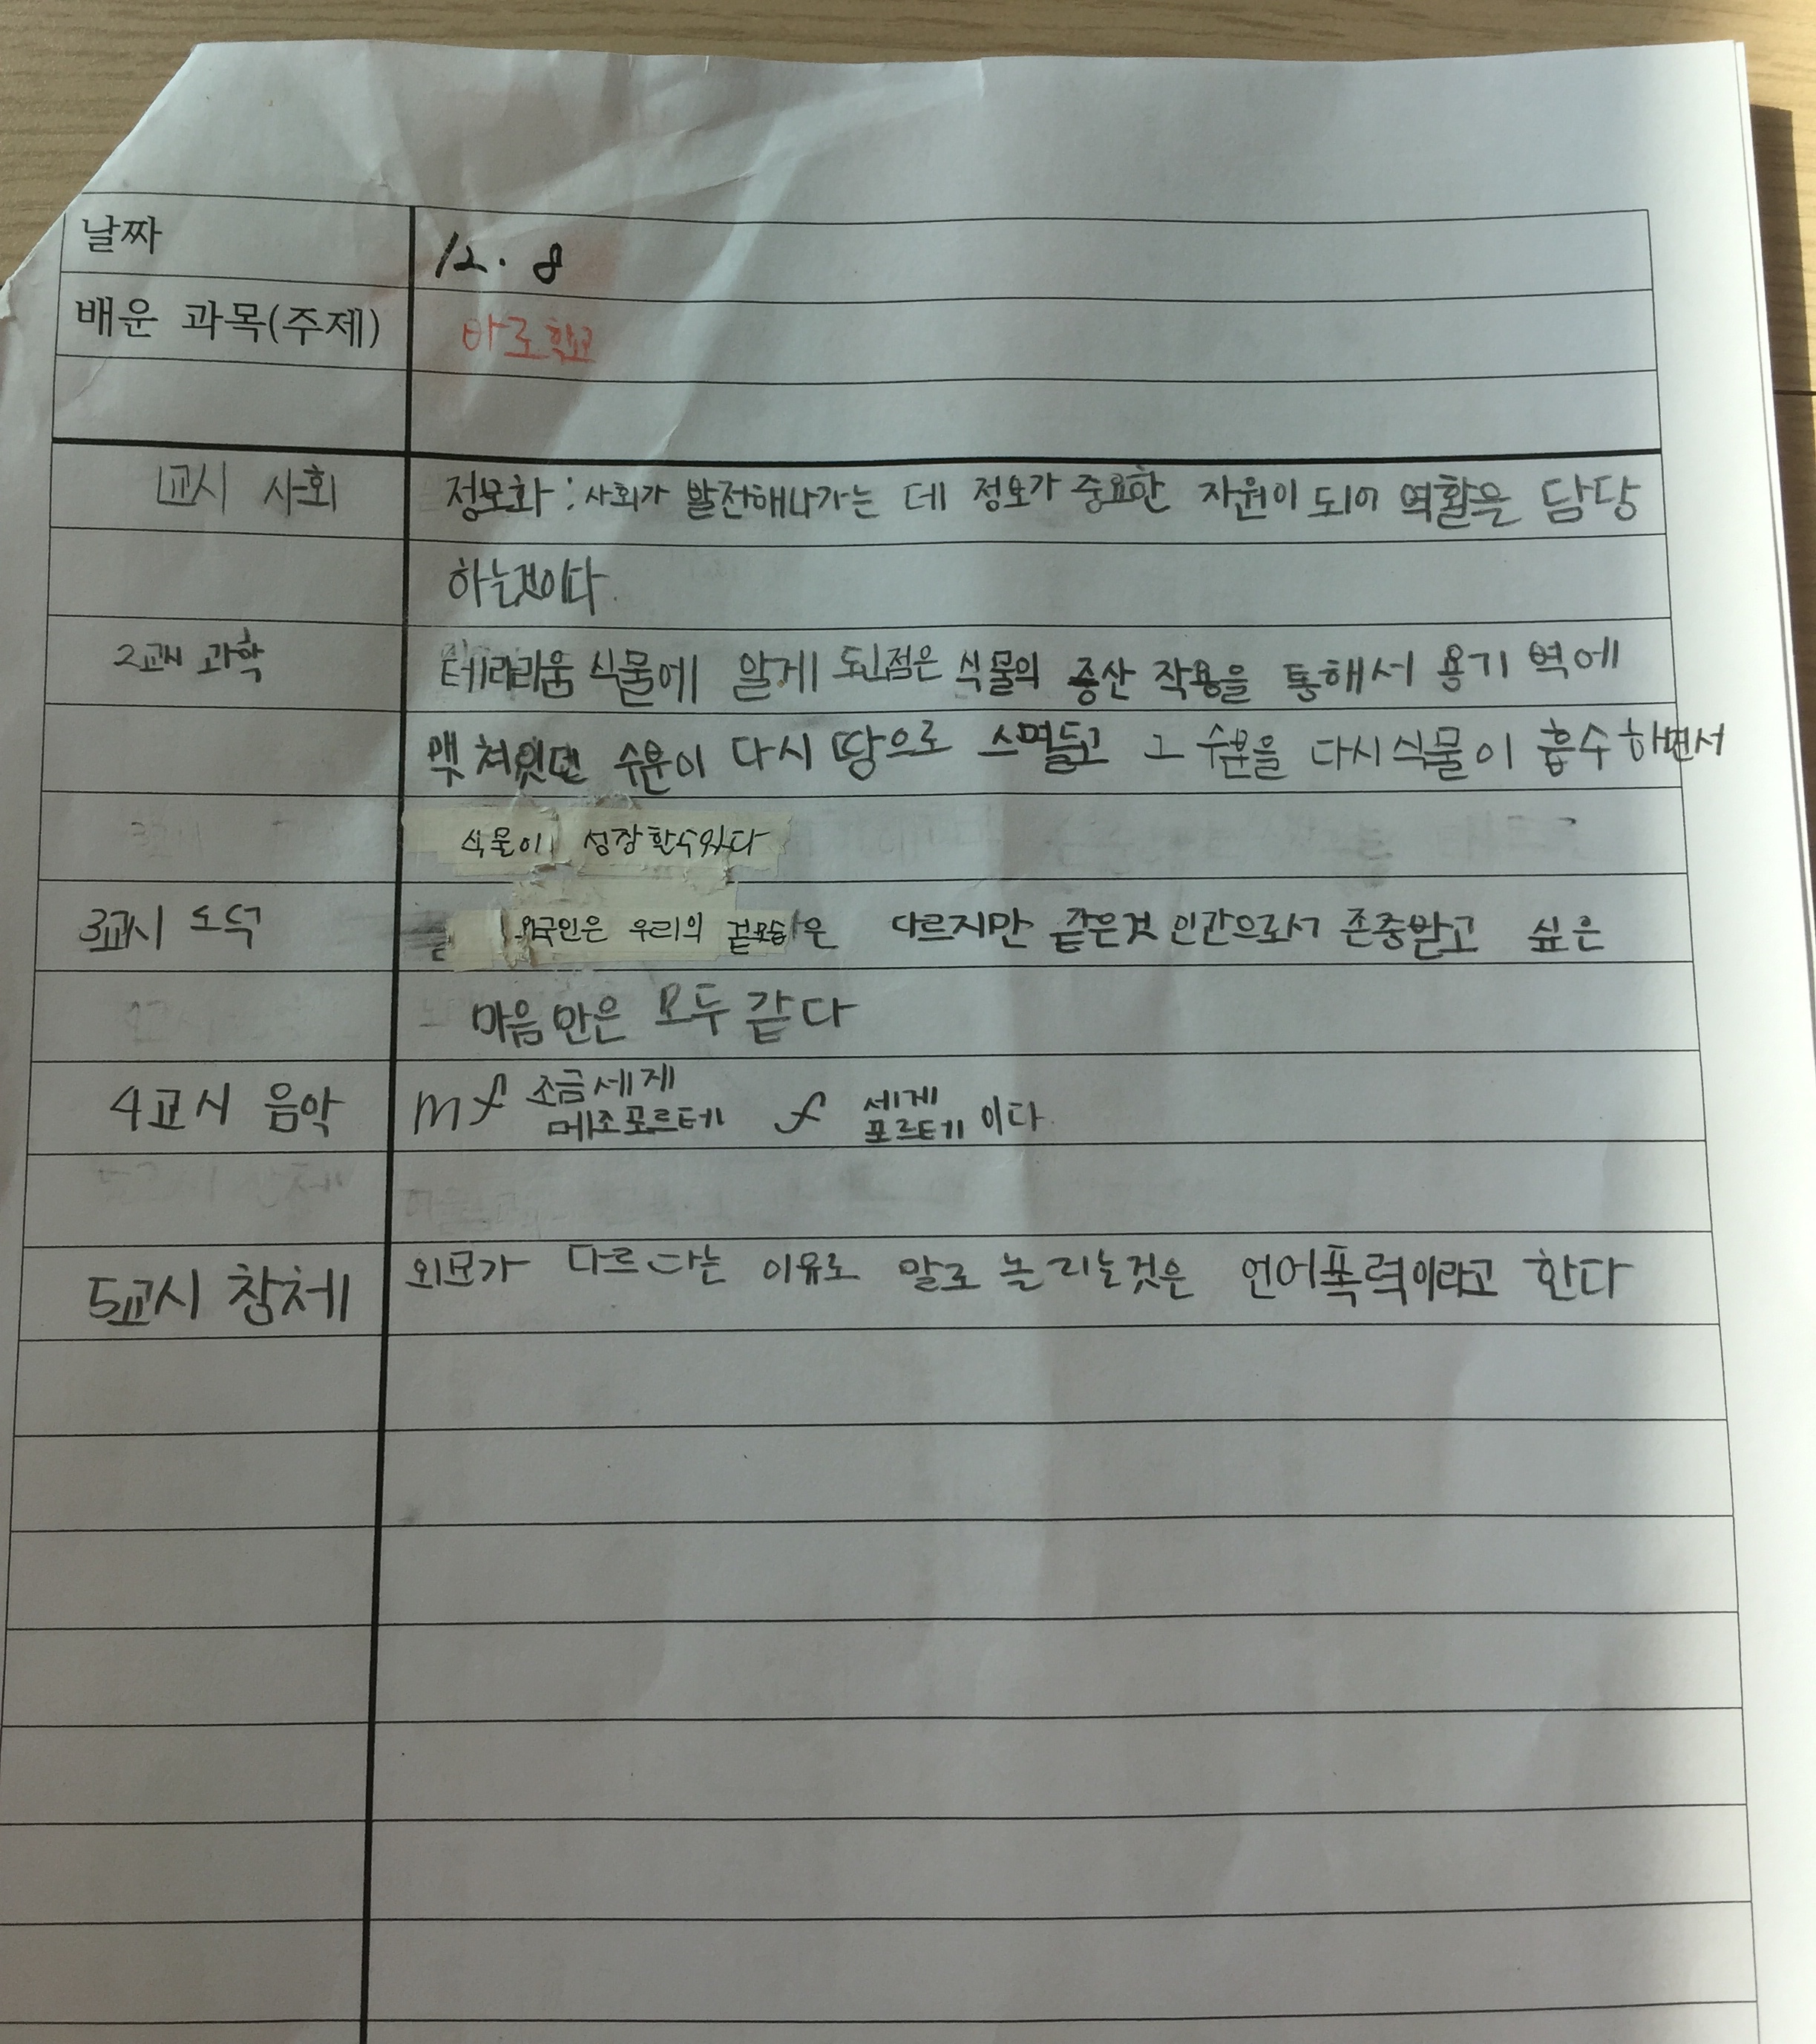 날짜 12. 8
배운 과목(주제) 바로학교
1교시 사회 정보화 : 사회가 발전해나가는 데 정보가 중요한 자원이 되어 역활을 담당
하는것이다.
2교시 과학 테라리움 식물에 알게 된점은 식물의 증산 작용을 통해서 용기 벽에
맺쳐있던 수분이 다시 땅으로 스며들고 그 수분을 다시 식물이 흡수 하면서
식물이 성장 할수있다
3교시 도덕 외국인은 우리의 겉모습은 다르지만 같은것 인간으로서 존중받고 싶은
마음 만은 모두 같다
4교시 음악 mf 조금세게 메조포르테 f 세게 포르테 이다.
5교시 창체 외모가 다르다는 이유로 말로 놀리는것은 언어폭력이라고 한다